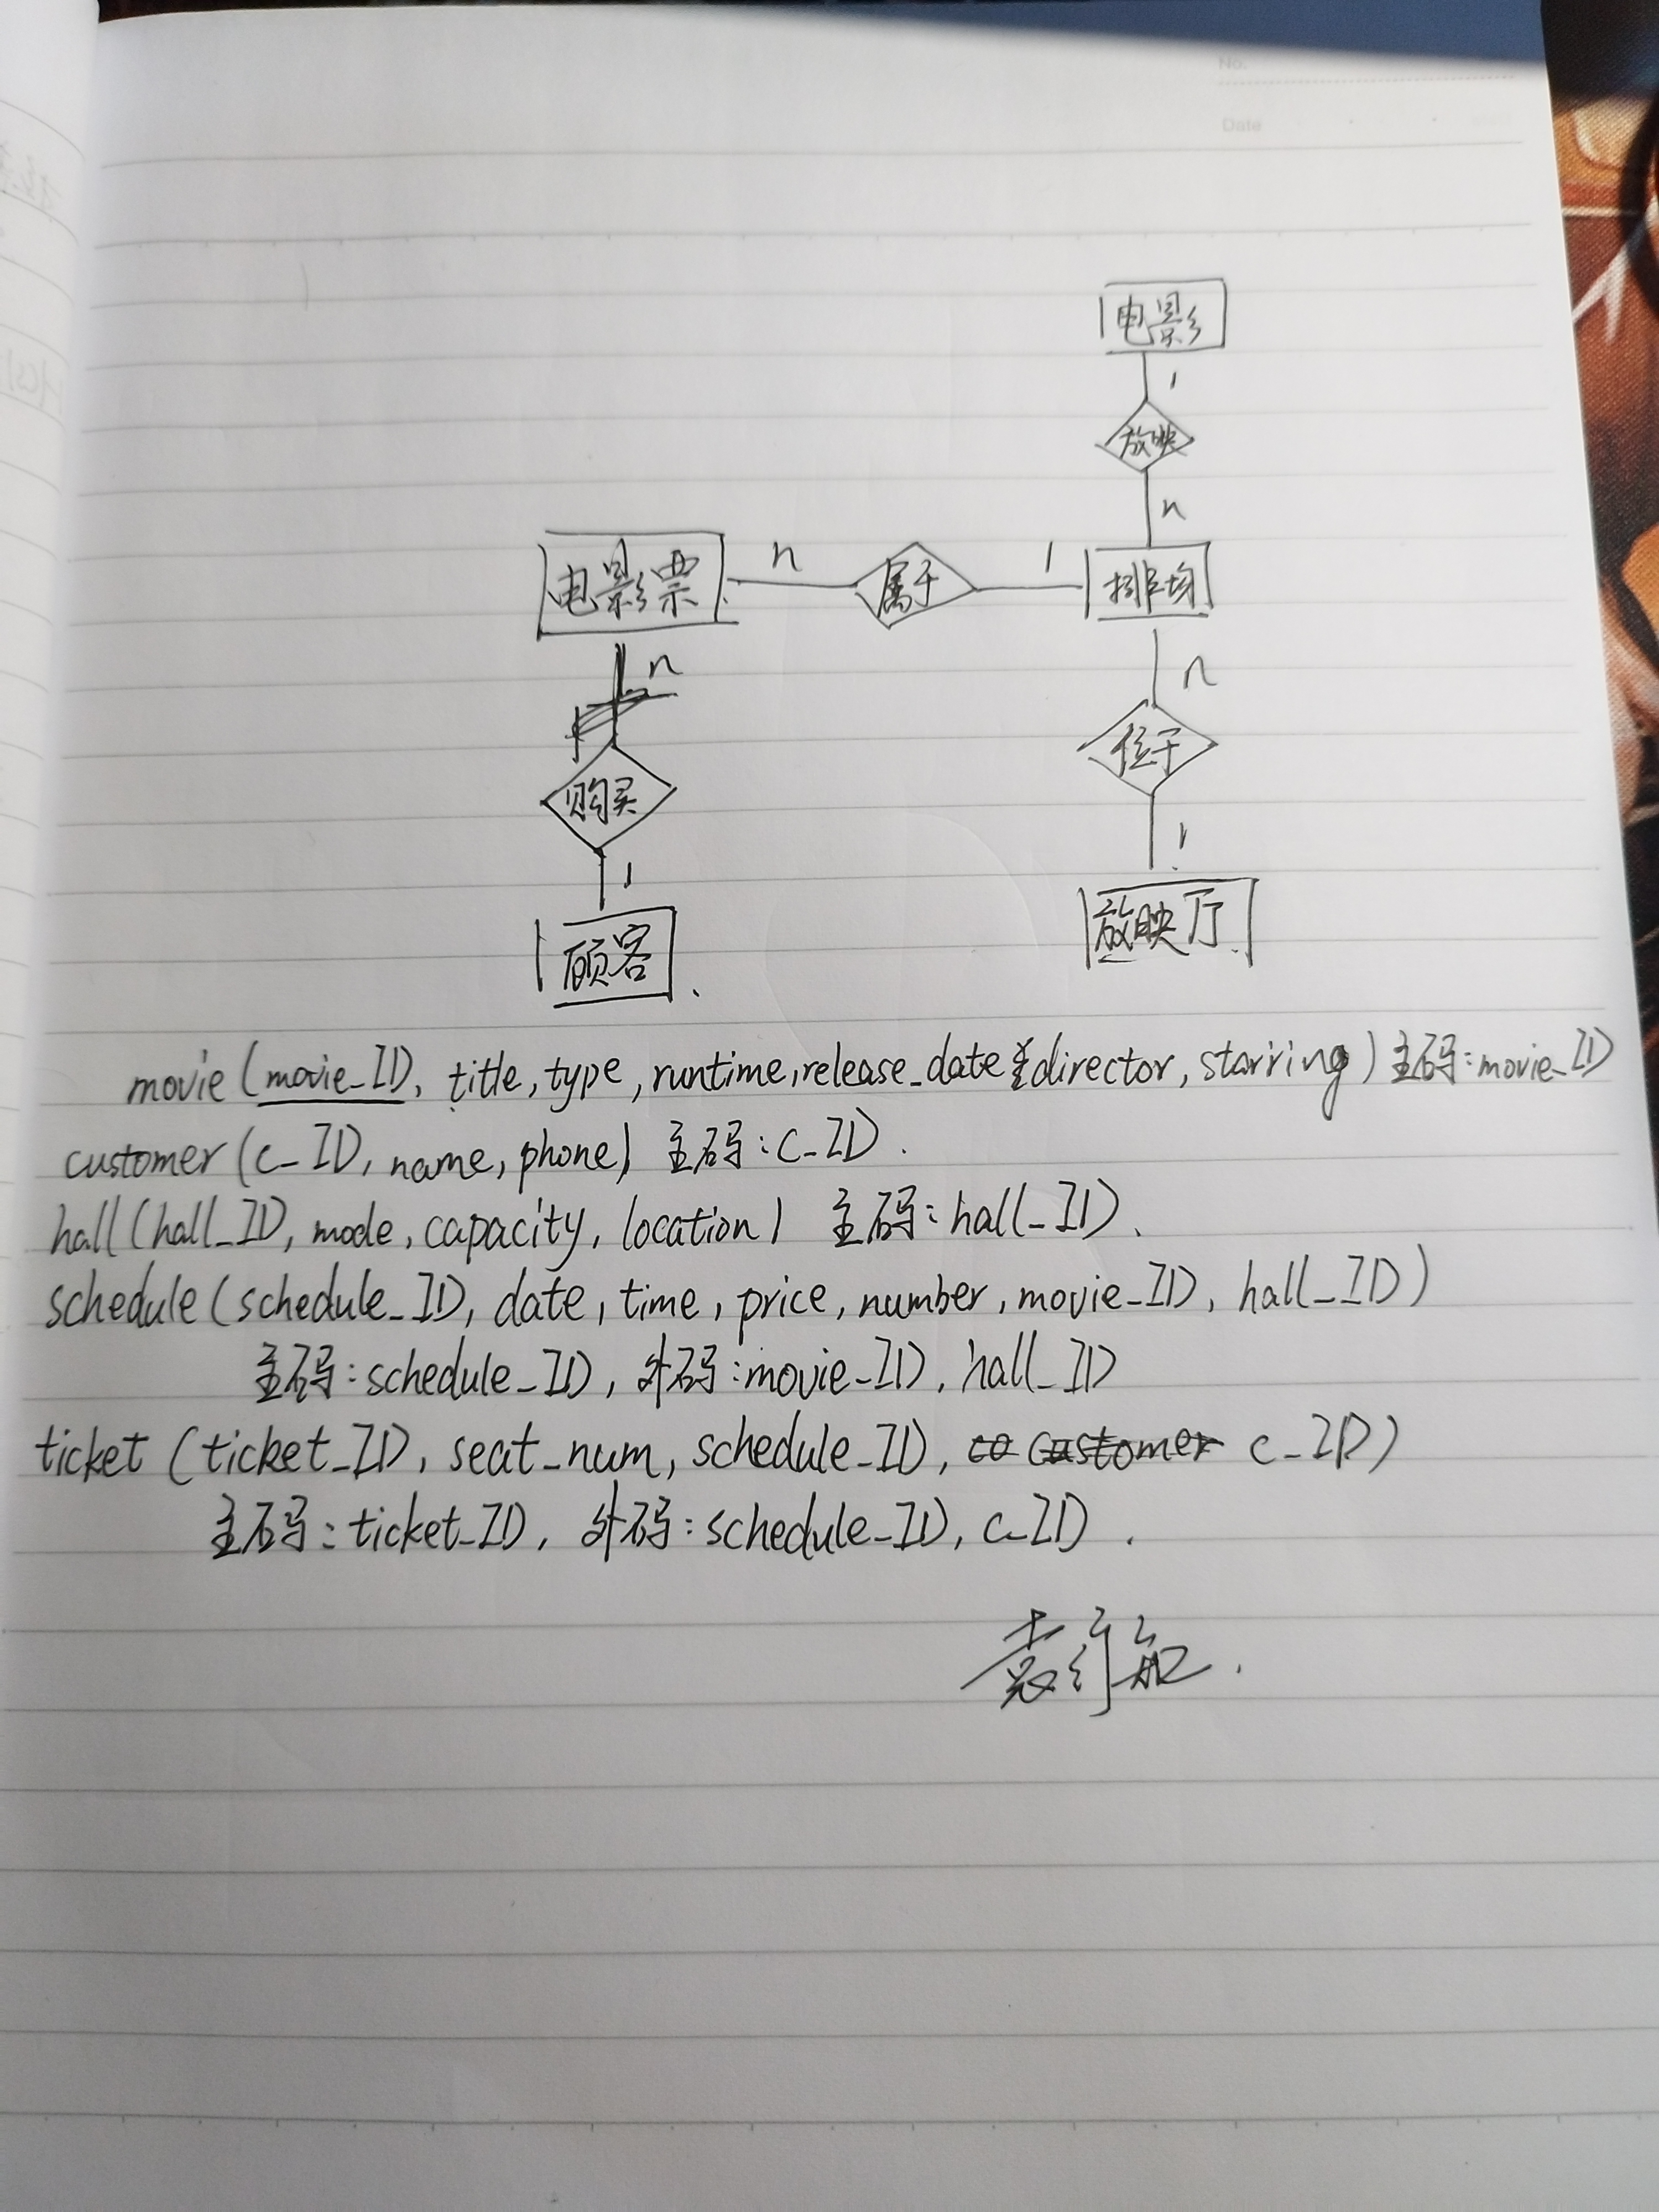 No.
Date
电影
1
放映
n
电影票 n 属于 1 排场
n n
购买 位于
1 1
顾客 放映厅
movie (movie_ID, title, type, runtime, release_date director, starring) 主码: movie_ID
customer (c_ID, name, phone) 主码: c_ID.
hall (hall_ID, mode, capacity, location) 主码: hall_ID.
schedule (schedule_ID, date, time, price, number, movie_ID, hall_ID)
主码: schedule_ID, 外码: movie_ID, hall_ID
ticket (ticket_ID, seat_num, schedule_ID, co customer c_ID)
主码: ticket_ID, 外码: schedule_ID, c_ID.